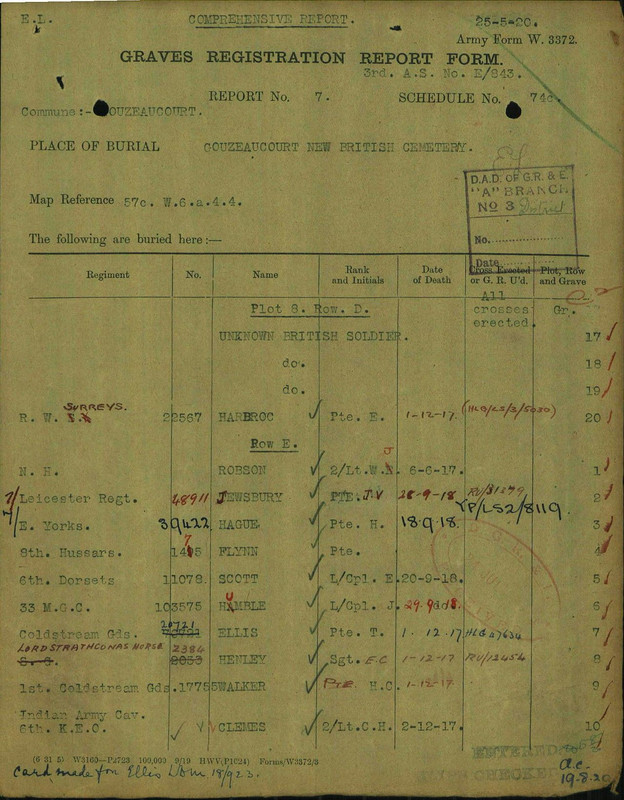 E.L. COMPREHENSIVE REPORT. 25-5-20.
Army Form W. 3372.
GRAVES REGISTRATION REPORT FORM.
3rd. A.S. No. E/843.
REPORT No. 7. SCHEDULE No. 74c.
Commune:- GOUZEAUCOURT.
PLACE OF BURIAL GOUZEAUCOURT NEW BRITISH CEMETERY.
D.A.D. OF G.R. & E.
"A" BRANCH
No 3 District
Map Reference 57c. W.6.a.4.4.
No.
The following are buried here:—
Date
Regiment No. Name Rank and Initials Date of Death Cross Erected or G. R. U'd. Plot, Row and Grave
Plot 8. Row. D. All crosses erected. Gr.
UNKNOWN BRITISH SOLDIER. 17
do. 18
do. 19
R. W. SURREYS. 22567 HARBROC Pte. E. 1-12-17. (HLG/LS/3/5030) 20
Row E.
N. H. ROBSON 2/Lt.W.J. 6-6-17. 1
7/ Leicester Regt. 48911 JEWSBURY PTE. J.V 28-9-18 RU/31279 2
7/ E. Yorks. 39422 HAGUE Pte. H. 18.9.18. YP/LS2/8119 3
8th. Hussars. FLYNN Pte. 4
6th. Dorsets 11078. SCOTT L/Cpl. E. 20-9-18. 5
33 M.G.C. 103575 HUMBLE L/Cpl. J. 29.9.18. 6
Coldstream Gds. 20721 ELLIS Pte. T. 1.12.17 HLG 27634 7
LORD STRATHCONAS HORSE 2384
S. G. 2053 HENLEY Sgt. E.C 1-12-17 RU/12454 8
1st. Coldstream Gds. 17755 WALKER Pte. H.C. 1-12-17 9
Indian Army Cav.
6th. K.E.O. CLEMES 2/Lt.C.H. 2-12-17. 10
ENTERED
(6 31 5) W3160—P2723 100,000 9/19 HWV(P1C24) Forms/W3372/3
Card made for Ellis 18/9/23.
CHECKED
a.c.
19.8.20